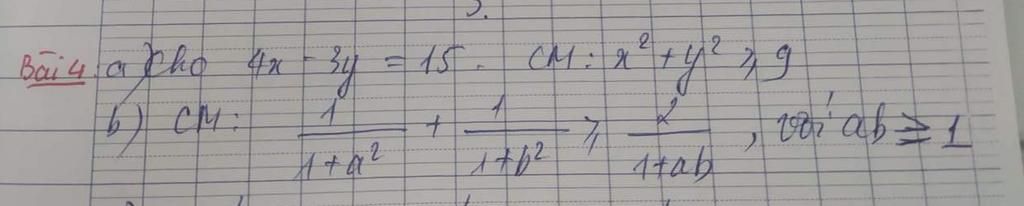 Bài 4. a) Cho 4x - 3y = 15. CM: x² + y² ≥ 9
b) CM: 1/(1+a²) + 1/(1+b²) ≥ 2/(1+ab), với ab ≥ 1